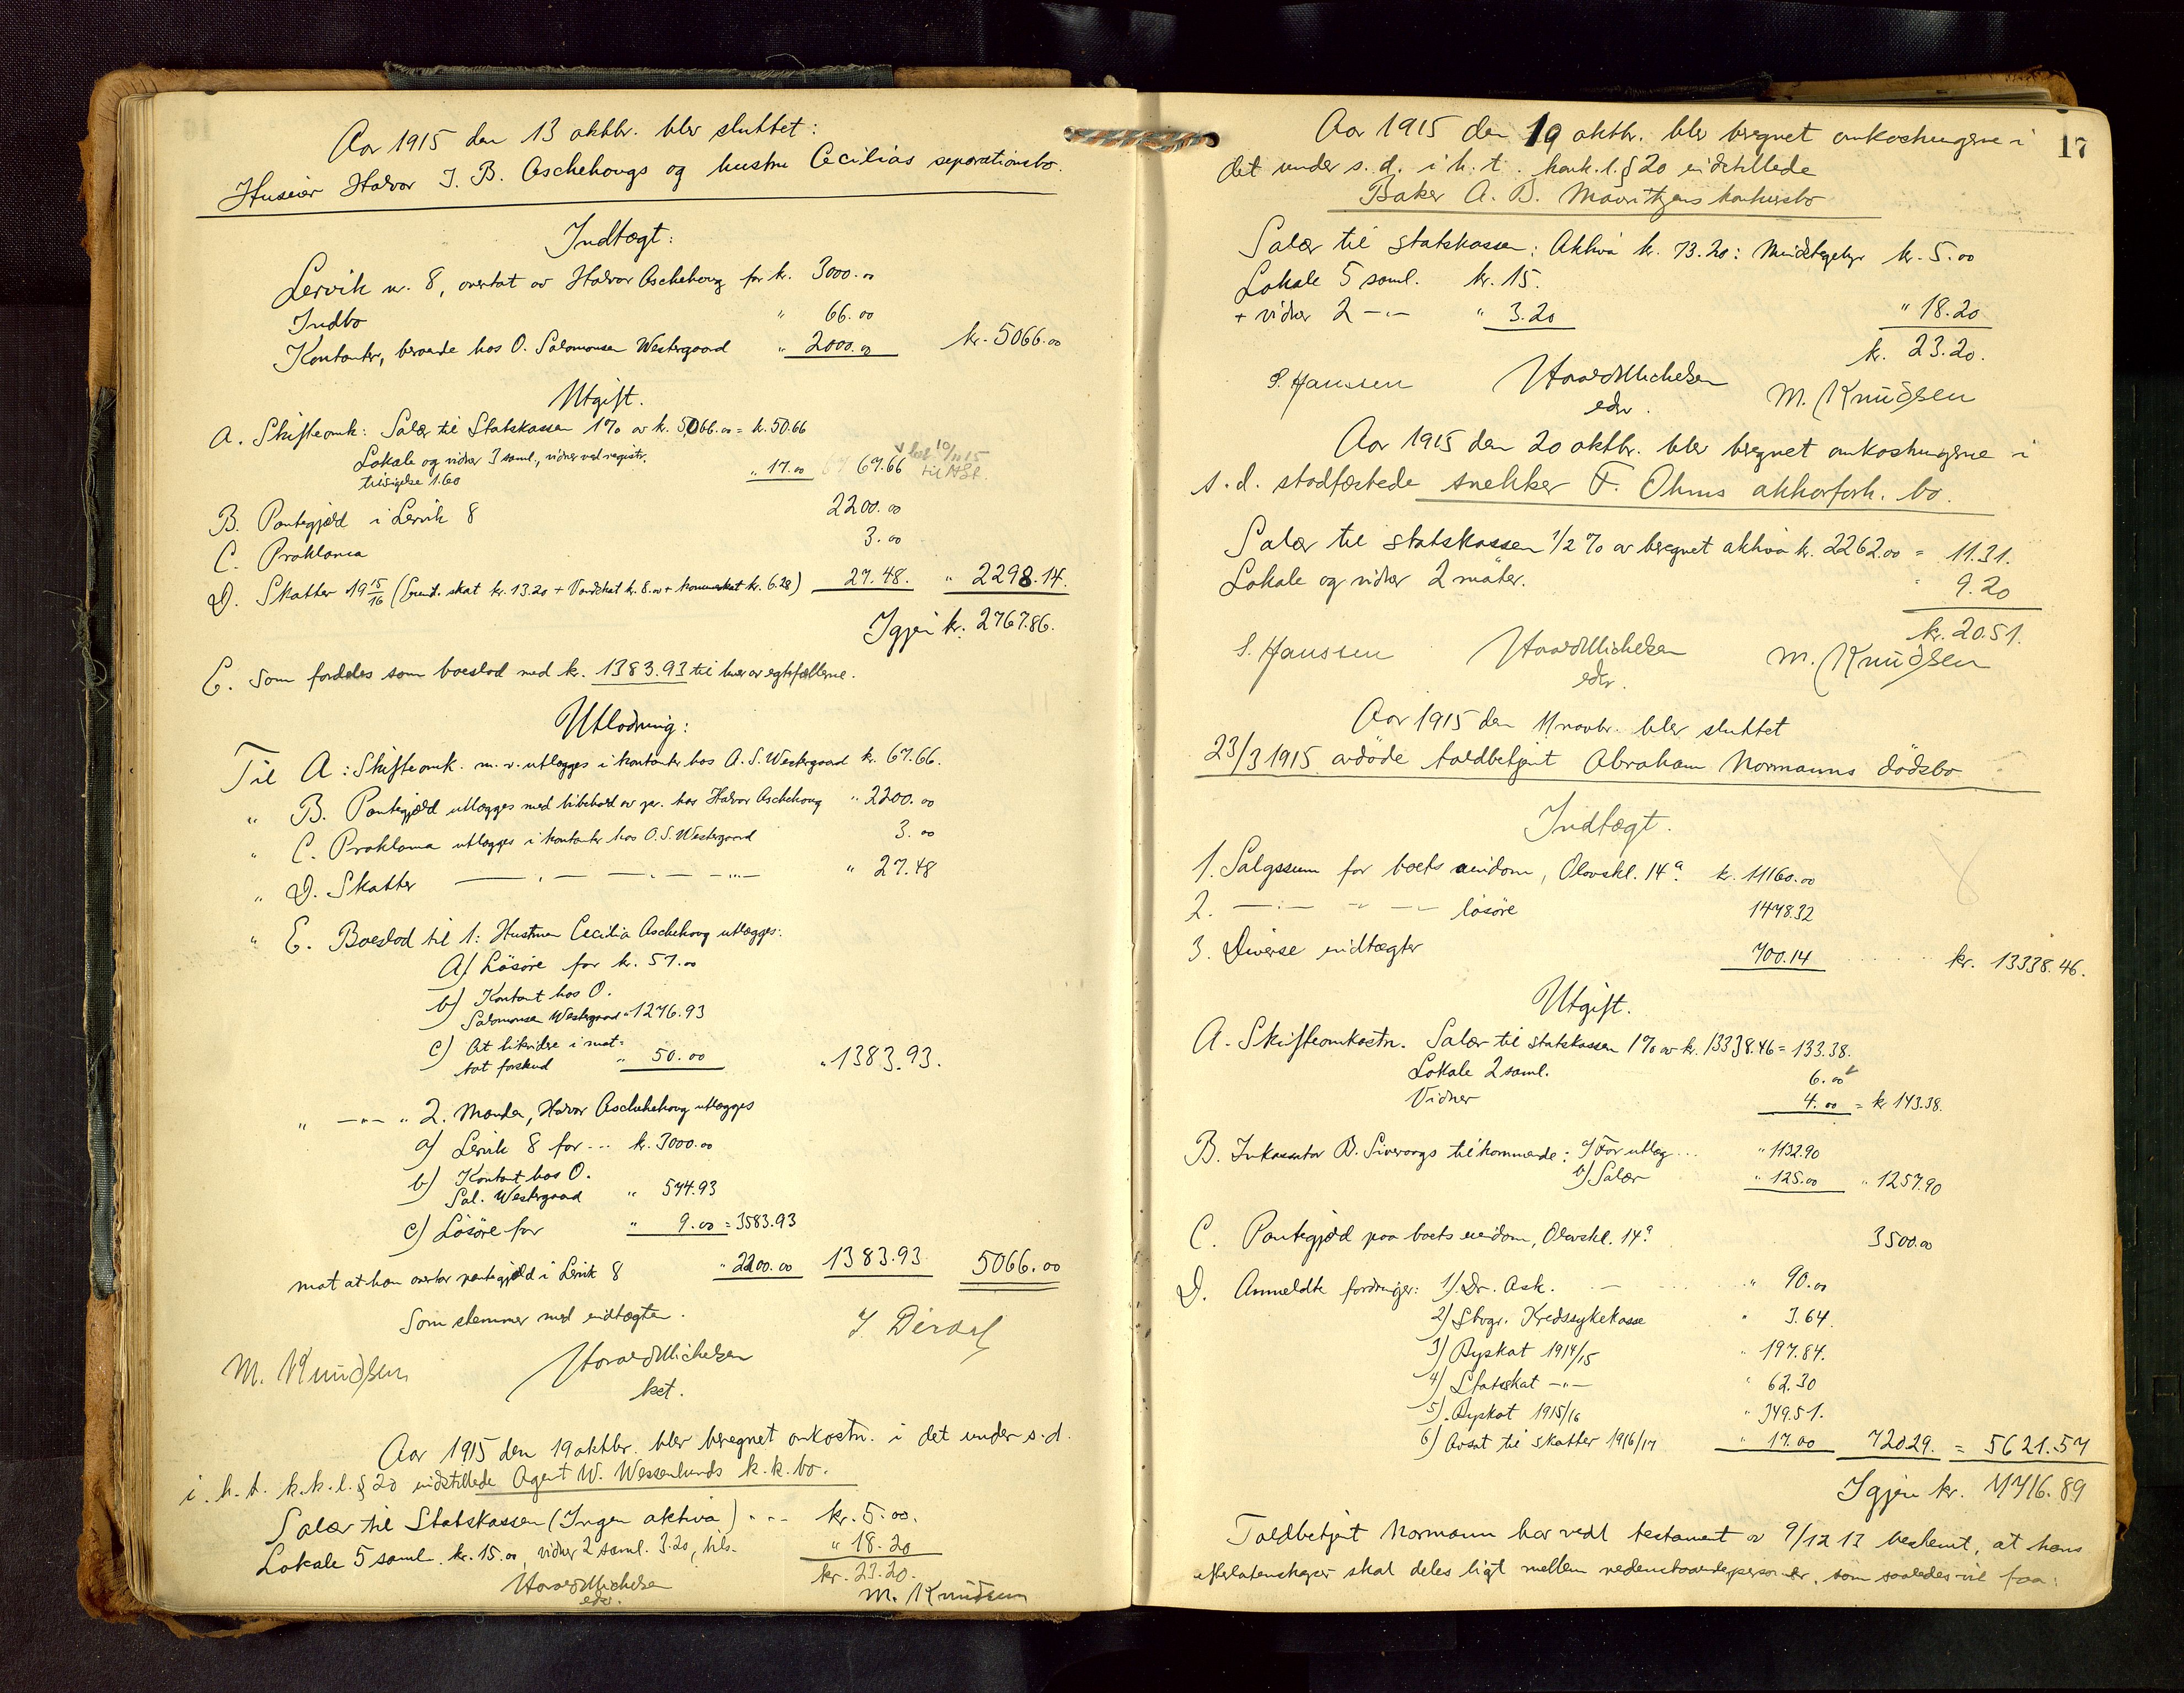 Aar 1915 den 13 oktbr. blev sluttet:
Huseier Halvor J. B. Aschehougs og hustru Cecilias separationsbo.
Indtægt:
Lervik nr. 8, overtat av Halvor Aschehoug for kr. 3000.00
Indbo " 66.00
Kontanter, beroende hos O. Salomonsen Westergaard " 2000.00 kr. 5066.00
Utgift.
A. Skifteomk: Salær til Statskassen 1% av kr. 5066.00 = kr. 50.66
Lokale og vidner 3 saml., vidner ved registr.
tilsigelse 1.60 " 17.00 67.66
B. Pantegjæld i Lervik 8 2200.00
C. Proklama 3.00
D. Skatter 19 15/16 (Eiend. skat kr. 13.20 + Vandskat kr. 8.00 + kommuneskat kr. 6.28) 27.48. " 2298.14.
Igjen kr. 2767.86.
E. Som fordeles som boeslod med kr. 1383.93 til hver av egtefællerne.
Utlodning:
Til A: Skifteomk. m. v. utlægges i kontanter hos O. S. Westergaard kr. 67.66.
" B. Pantegjæld utlægges med bibehold av pr. hos Halvor Aschehoug " 2200.00
" C. Proklama utlægges i kontanter hos O. S. Westergaard 3.00
" D. Skatter — " — " — " 27.48
" E. Boeslod til 1: Hustruen Cecilia Aschehoug utlægges:
A) Løsøre for kr. 57.00
b) Kontant hos O.
Salomonsen Westergaard " 1276.93
c) At likvidere i mot-
tat forskud " 50.00 " 1383.93.
" —"— " 2. Manden, Halvor Aschehoug utlægges
a) Lervik 8 for ... kr. 3000.00
b) Kontant hos O.
Sal. Westergaard " 574.93
c) Løsøre for " 9.00 = 3583.93
mot at han overtar pantegjæld i Lervik 8 " 2200.00 1383.93 5066.00
Som stemmer med indtægten.
M. Knudsen Michelsen
kst.
Aar 1915 den 19 oktbr. blev beregnet omkostn. i det under s.d.
i. h. t. k.k.l. § 20 indstillede Agent W. Wessenlunds k.k.bo.
Salær til Statskassen (Ingen aktiva) ... kr. 5.00.
Lokale 5 saml. kr. 15.00, vidner 2 saml. 3.20, tils. " 18.20
kr. 23.20.
Michelsen M. Knudsen
edsv.
17
Aar 1915 den 19 oktbr. blev beregnet omkostningerne i
det under s. d. i h. t. konk. l. § 20 indstillede
Baker A. B. Mauritzens konkursbo
Salær til statskassen: Aktiva kr. 73.20: Mindstegebyr kr. 5.00
Lokale 5 saml. kr. 15.
+ vidner 2 —"— " 3.20 " 18.20
kr. 23.20.
S. Hanssen Michelsen M. Knudsen
edsv.
Aar 1915 den 20 oktbr. blev beregnet omkostningerne i
s. d. stadfæstede snekker F. Ohms akkordforh. bo.
Salær til statskassen 1/2 % av beregnet aktiva kr. 2262.00 = 11.31.
Lokale og vidner 2 møter. " 9.20
kr. 20.51.
S. Hanssen Michelsen M. Knudsen
edsv.
Aar 1915 den 11 novbr. blev sluttet
23/3 1915 avdøde toldbetjent Abraham Normanns dødsbo
Indtægt.
1. Salgssum for boets eiendom, Olavskl. 14a. kr. 11160.00
2. — " — " — løsøre 1478.32
3. Diverse indtægter 700.14 kr. 13338.46.
Utgift.
A. Skifteomkostn. Salær til statskassen 1% av kr. 13338.46 = 133.38.
Lokale 2 saml. 6.00
Vidner 4.00 = kr 143.38.
B. Inkassator B. Siveraags tilkommende: a) For utlæg ... " 1132.90
b) Salær " 125.00 " 1257.90
C. Pantegjæld paa boets eiendom, Olavskl. 14a 3500.00
D. Anmeldte fordringer: 1) Dr. Ask. " 90.00
2) Stvgr. Kredssykekasse " 3.64.
3) Byskat 1914/15 " 197.84.
4) Statsskat —"— " 62.30
5) Byskat 1915/16 " 349.51.
6) Avsat til skatter 1916/17 " 17.00 720.29. = 5621.57
Igjen kr. 7716.89
Toldbetjent Normann har ved testament av 9/12 13 bestemt, at hans
efterlatenskaper skal deles ligt mellem nedenstaaende personer, som saaledes vil faa: